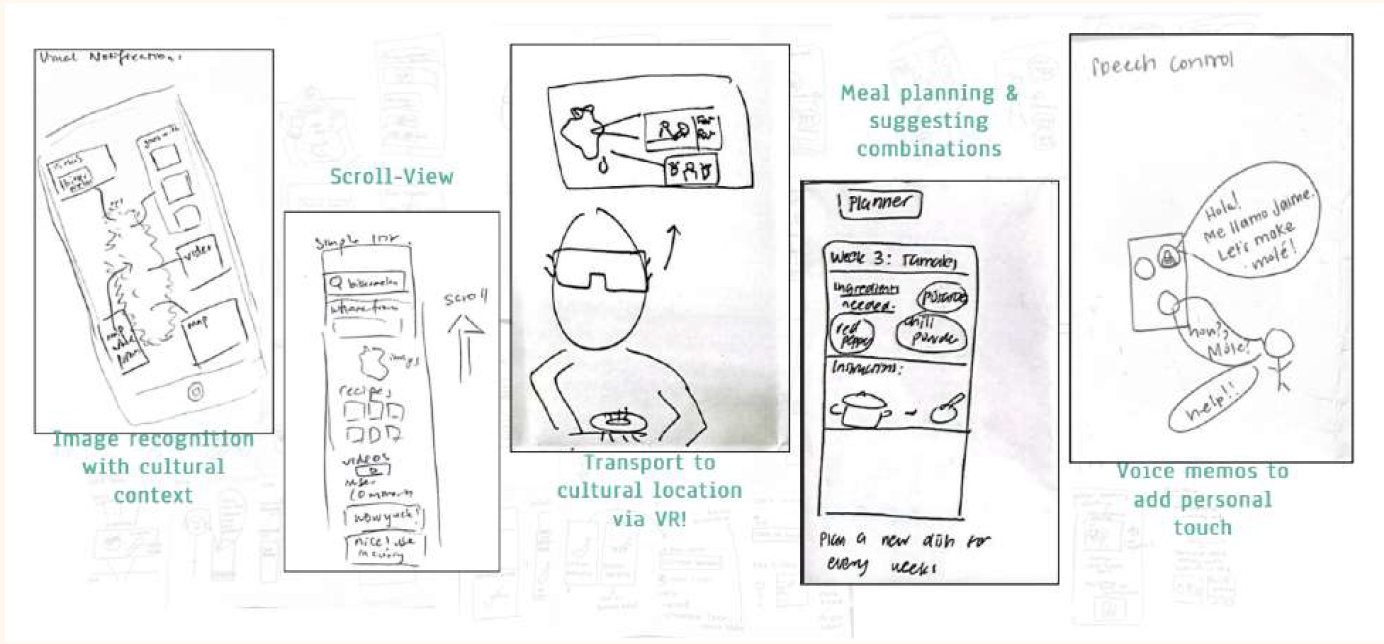 Visual Notifications
goes with
video
map
Image recognition
with cultural
context
Scroll-View
Simple list.
bittermelon
where from
imgs
recipes
videos
user
comments
wow yuck!
nice! use
in curry
scroll
Transport to
cultural location
via VR!
Meal planning &
suggesting
combinations
Planner
Week 3: Tamales
Ingredients
needed.
red
pepper
chili
powder
Instructions:
Plan a new dish for
every week!
Speech Control
Hola!
Me llamo Jaime.
Let's make
molé!
how??
Mole?
help!!
Voice memos to
add personal
touch